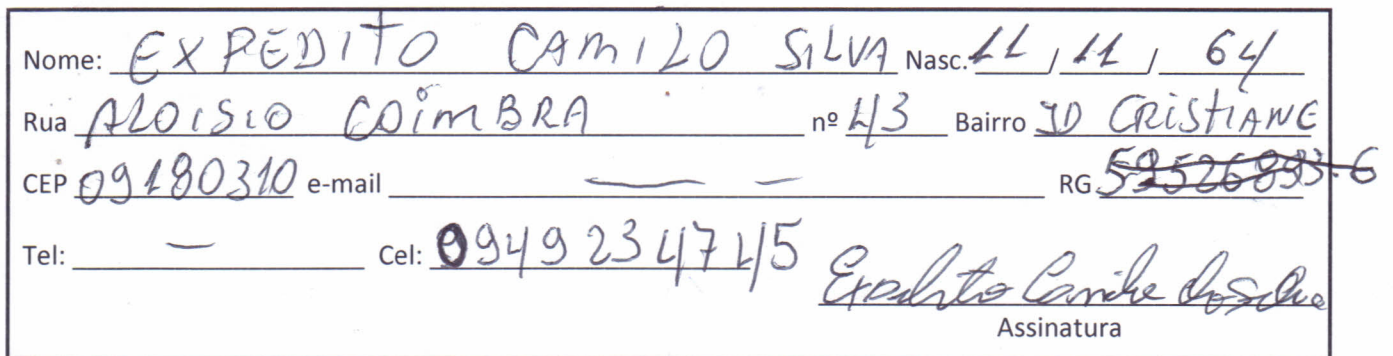 Nome: EXPEDITO CAMILO SILVA Nasc. 11 / 11 / 64
Rua ALOISIO COIMBRA nº 43 Bairro JD CRISTIANE
CEP 09180310 e-mail — — RG 59526893-6
Tel: — Cel: 0949234745
Expedito Camilo da Silva
Assinatura